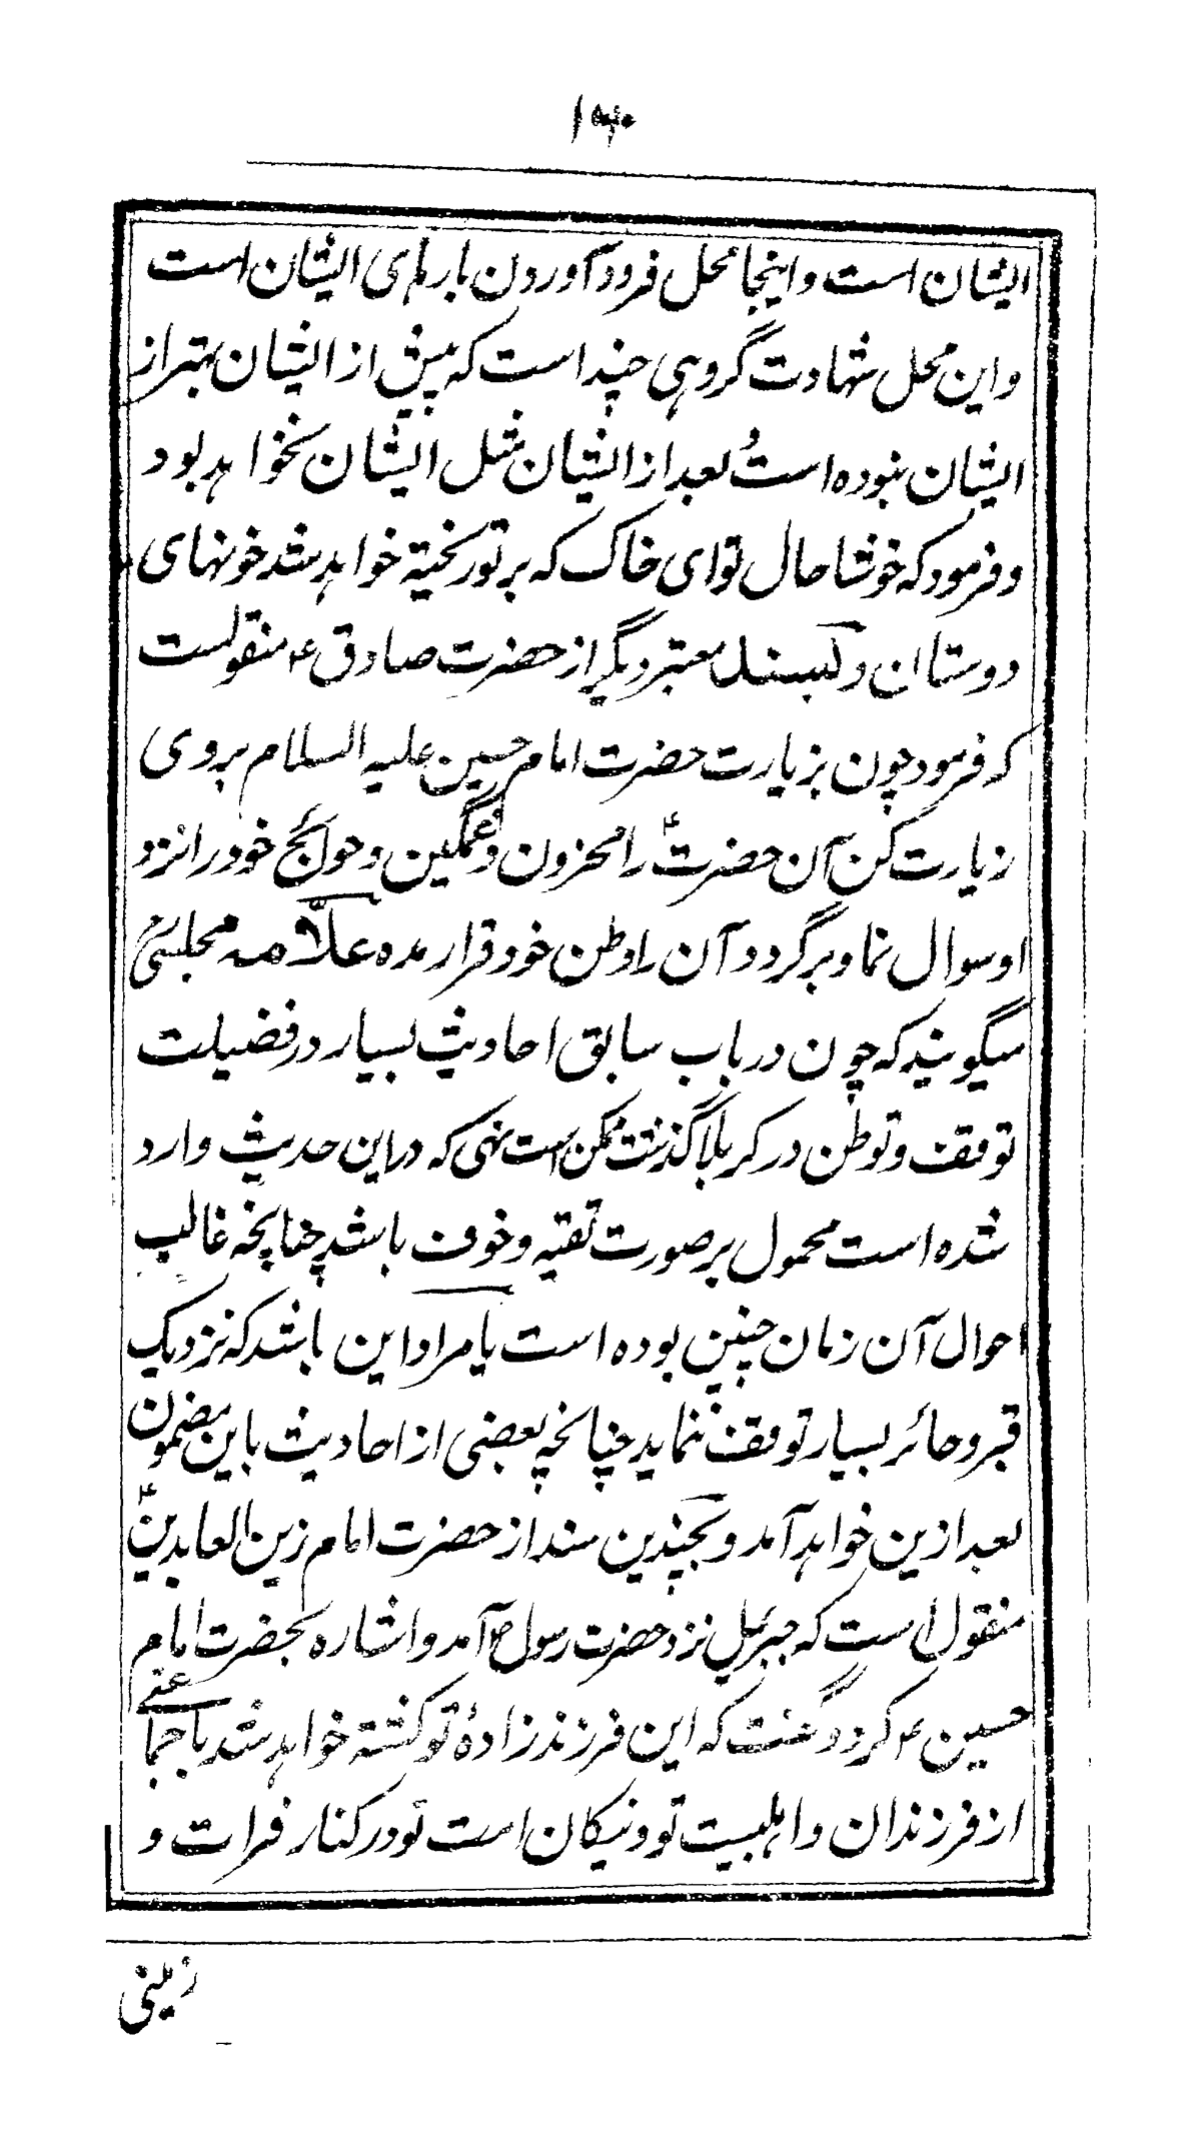 ایشان است و اینجا محل فرود آوردن بارهای ایشان است
و این محل شهادت گروهی چند است که پیش از ایشان بهتر از
ایشان نبوده است و بعد از ایشان مثل ایشان نخواهد بود
و فرمود که خوشا حال تو ای خاک که بر تو ریخته خواهد شد خونهای
دوستان و بسند معتبر دیگر از حضرت صادق ع منقولست
که فرمود چون بزیارت حضرت امام حسین علیه السلام بروی
زیارت کن آن حضرت ع را محزون و غمگین و حوائج خود را نزد
او سوال نما و برگرد و آن را وطن خود قرار مده علامه مجلسی رح
میگویند که چون در باب سابق احادیث بسیار در فضیلت
توقف و توطن در کربلا گذشت ممکن است نهی که در این حدیث وارد
شده است محمول بر صورت تقیه و خوف باشد چنانچه غالب
احوال آن زمان چنین بوده است یا مراد این باشد که نزدیک
قبر و حائر بسیار توقف ننماید چنانچه بعضی از احادیث باین مضمون
بعد ازین خواهد آمد و بچندین سند از حضرت امام زین العابدین ع
منقول است که جبرئیل نزد حضرت رسول ص آمد و اشاره بحضرت امام
حسین ع کرد و گفت که این فرزندزادهٔ تو کشته خواهد شد با جماعتی
از فرزندان و اهلبیت تو و نیکان امت تو در کنار فرات و
زمینی